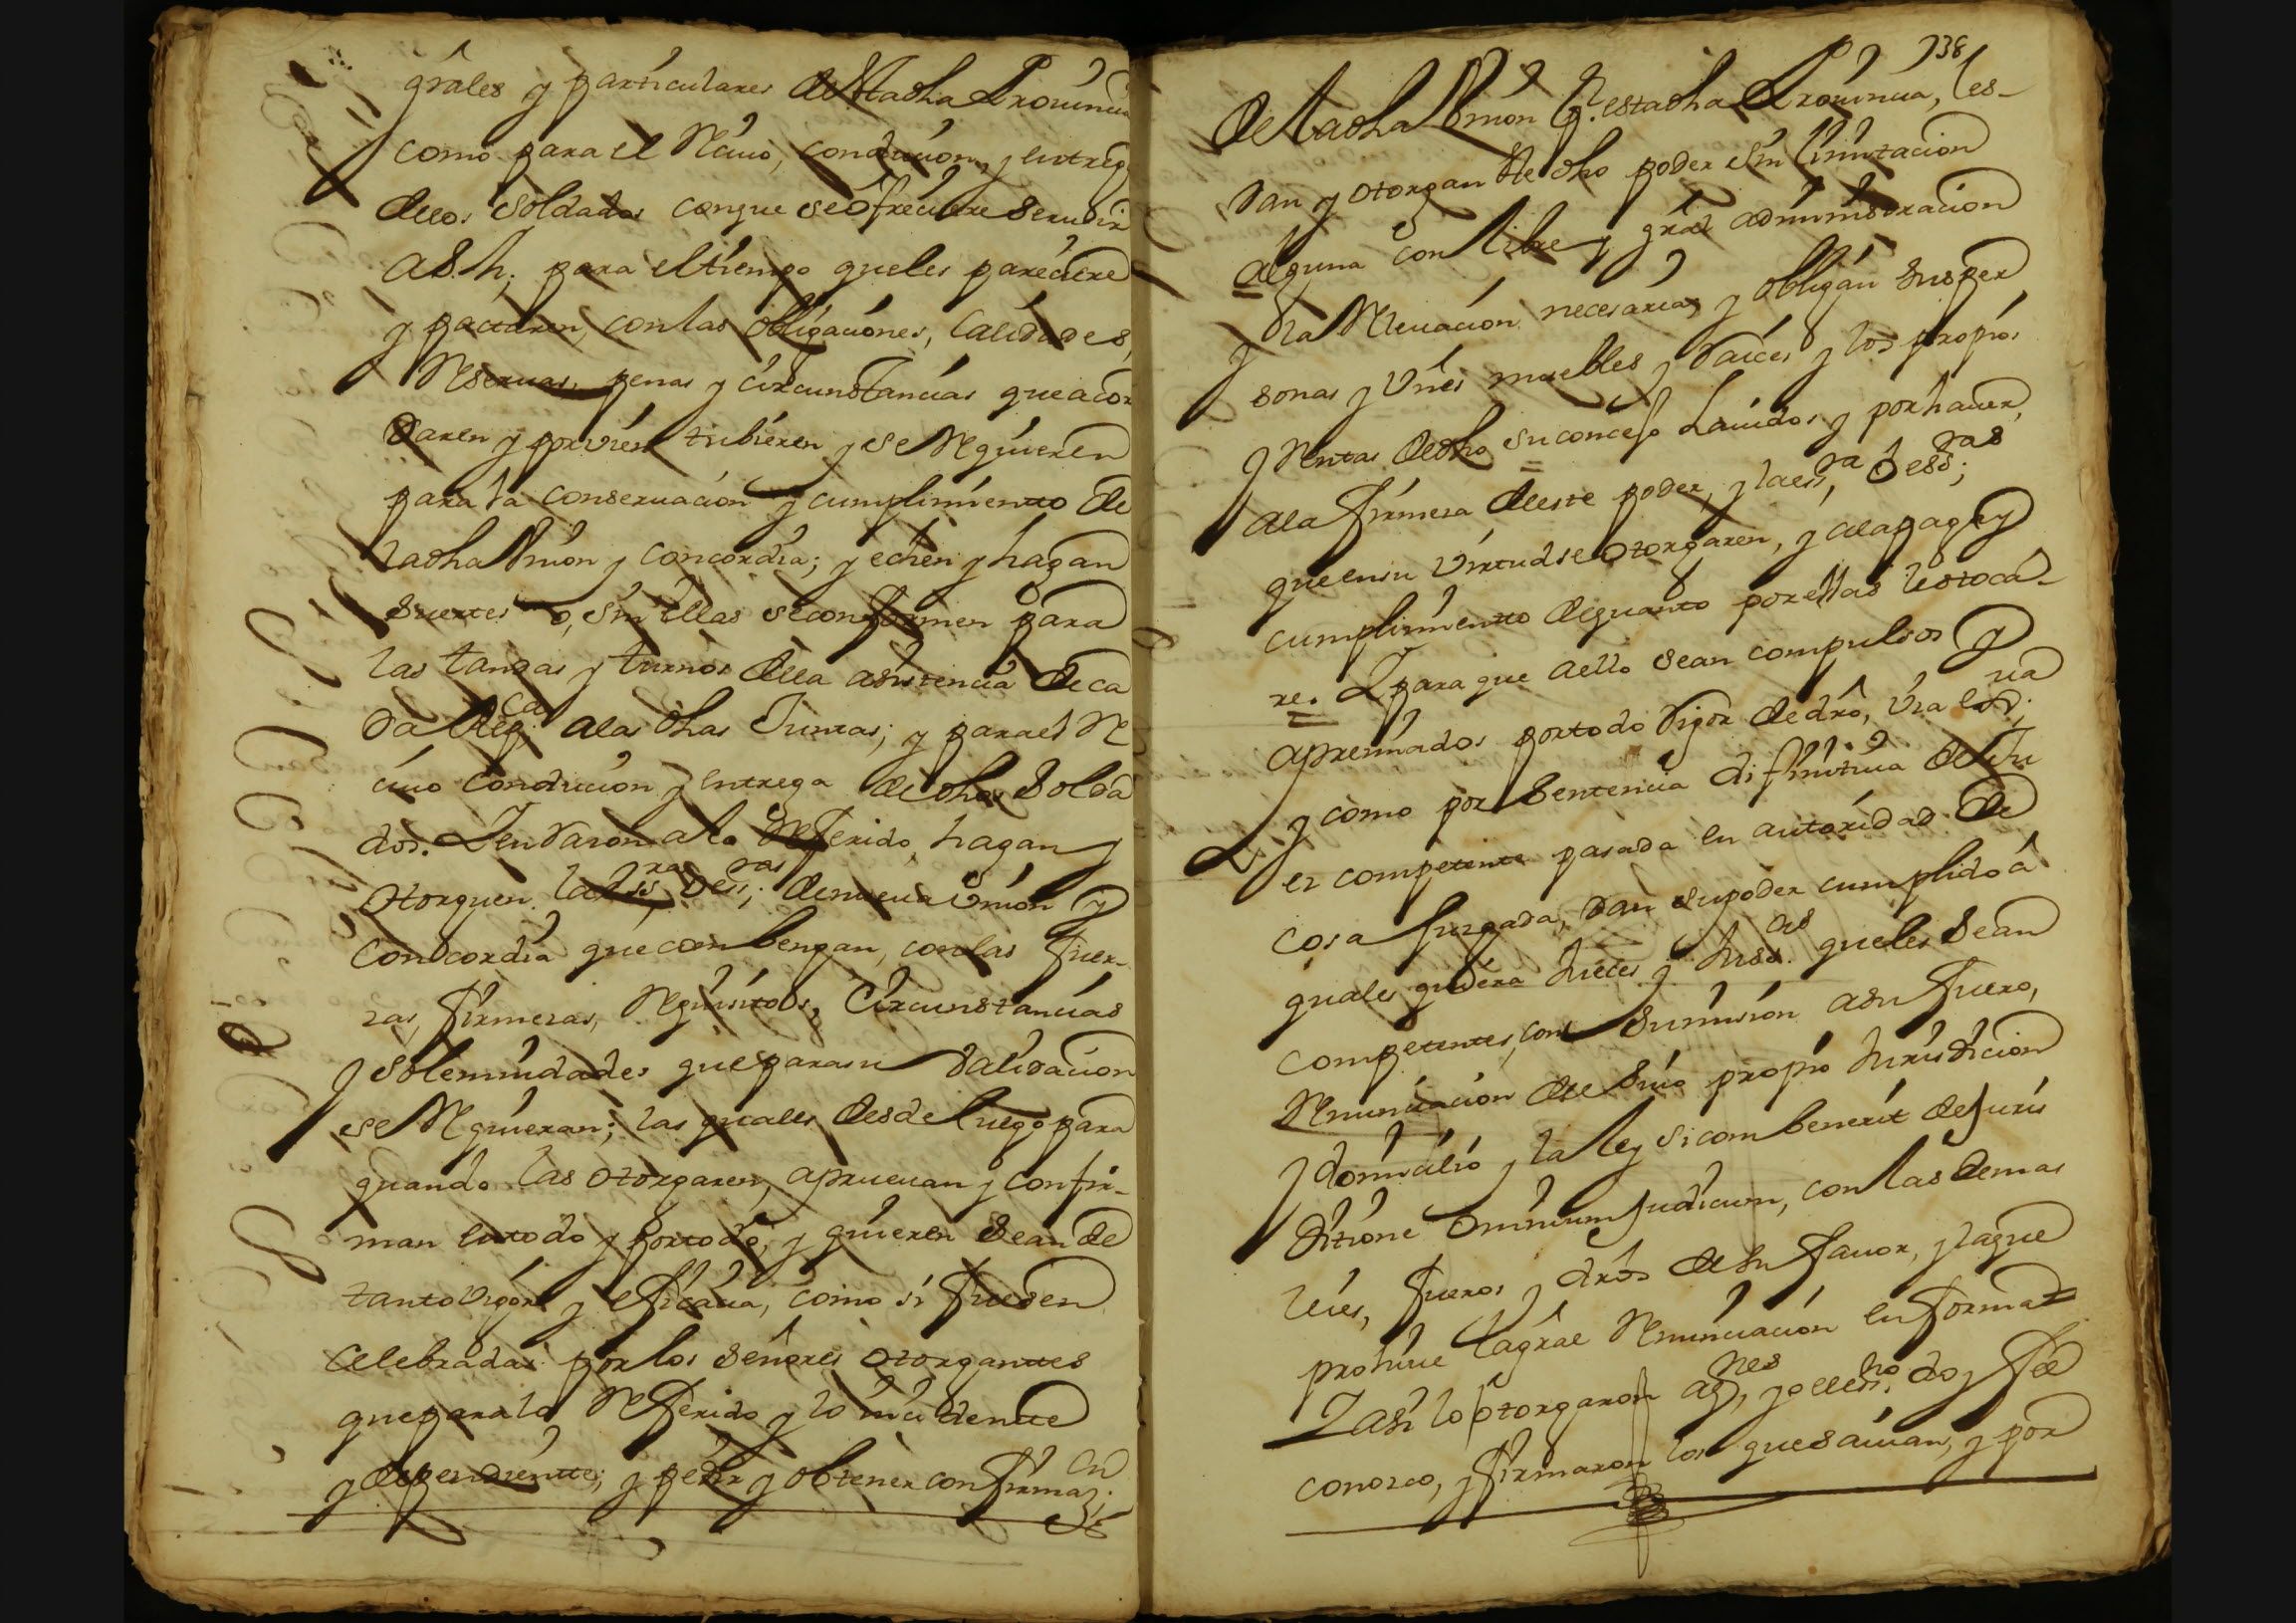 grâles y particulares de Ala dha Prouincia
como para el Reciuo, conducion, y entrega
de los soldados conque se ofreciere seruir
a S. M. para el tiempo que les pareciere
y pactaren, con las obligaciones, calidades,
Reseruas, penas y circunstancias que acor
daren y por vien tubieren y se Requieren
para la conseruacion y cumplimiento de
la dha Vnion y concordia; y echen y hagan
suertes o, sin ellas se conformen para
las tandas y turnos de la asistencia de ca
da Rep.ca a las dhas Juntas; y para el Re
ciuo conducion y entrega de dhos solda
dos. Y en Razon a lo Referido, hagan y
otorguen la ess.ra o ess.ras de nueua Vnion y
concordia que combengan, con las fuer-
zas, firmezas, Requisitos, circunstancias
y solemnidades que para su Validacion
se Requieran; las quales desde luego para
quando las otorgaren, aprueuan y confir-
man en todo y por todo, y quieren sean de
tanto Vigor y eficacia, como si fuesen
celebradas por los señores otorgantes
que para lo Referido y lo incidente
y dependiente; y pedir y obtener confirmaz.on
138
de la dha Vnion q. esta dha Prouincia, les
dan y otorgan el dho poder sin limitacion
alguna con libre y grâl administracion
y la Releuacion necesaria, y obligan sus per
sonas y vnês muebles y Raices y los propios
y Rentas de dho su concejo hauidos y por hauer,
a la firmeza de este poder, y la ess.ra o ess.ras
que en su virtud se otorgaren, y a la paga y
cumplimiento de quanto por ellas les toca-
re. Y para que a ello sean compulsos y
apremiados por todo Rigor de drô, via ex.ua
y como por sentencia difinitiua de Ju
ez competente pasada en autoridad de
cosa Juzgada, dan su poder cumplido â
quales quiera Jueces y Juss.as que les sean
competentes, con sumision a su fuero,
Renunciacion de el suio propio Jurisdicion
y domicilio y la ley si combenerit de Juris
ditione omnium Judicum, con las demas
leies, fueros y drôs de su fauor, y la que
prohiue la grâl Renunciacion en forma
Y asi lo otorgaron a q.nes yo el ess.no doy fee
conozco, y firmaron los que sauian, y por